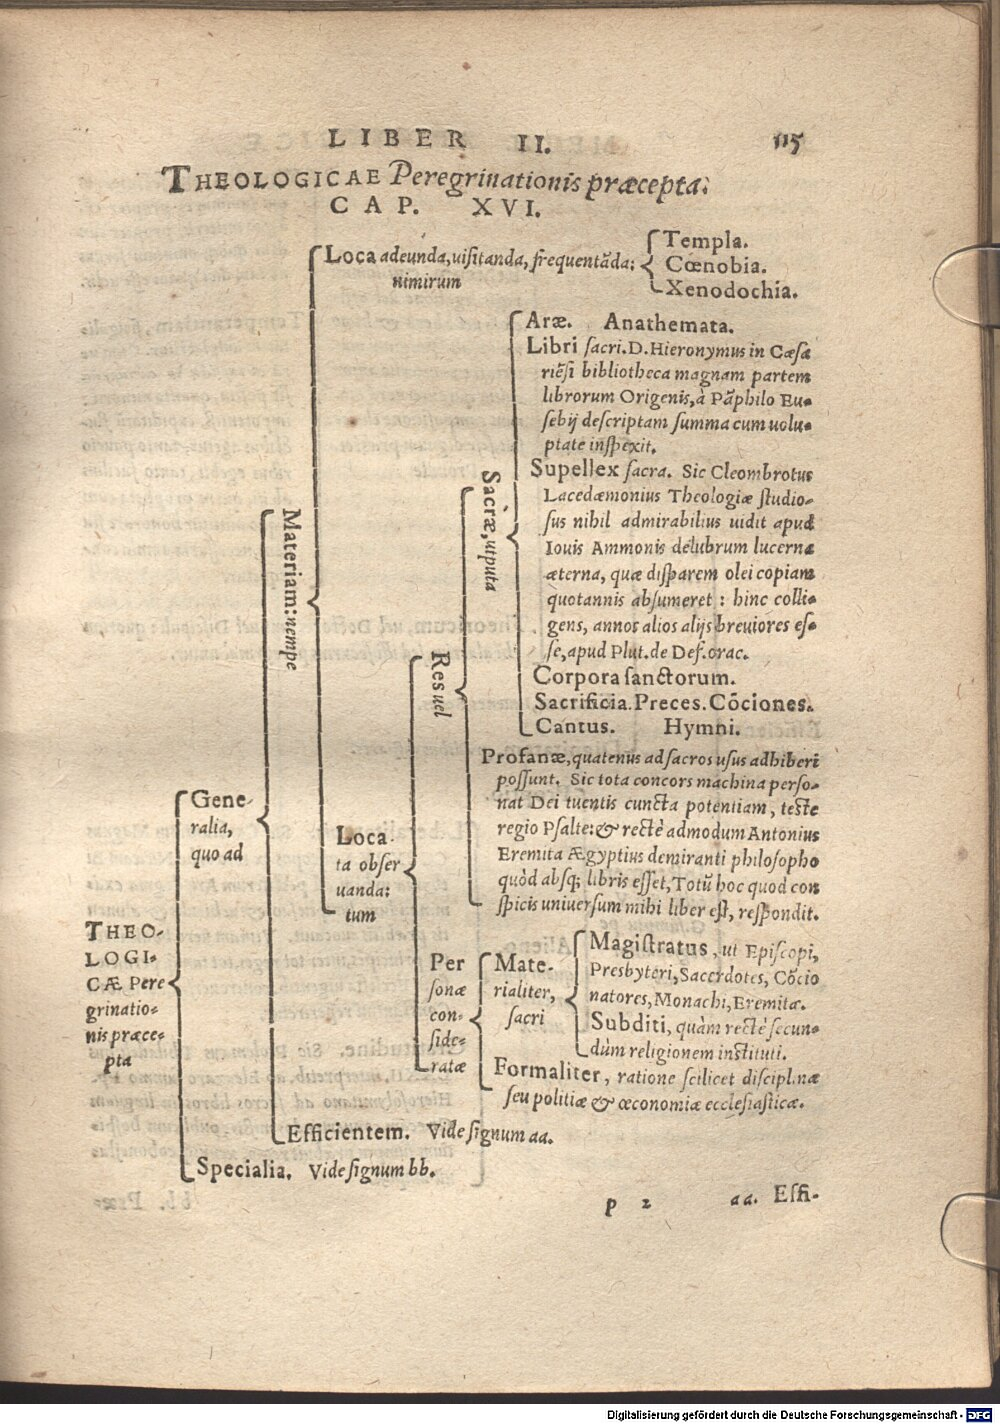 LIBER II. 115
THEOLOGICAE Peregrinationis præcepta.
CAP. XVI.
THEO-
LOGI-
CÆ Pere
grinatio-
nis præce-
pta
Gene-
ralia,
quo ad
Materiam: nempe
Loca adeunda, uisitanda, frequentãda:
nimirum
Templa.
Cœnobia.
Xenodochia.
Loca-
ta obser
uanda:
tum
Res uel
Sacræ, utputa
Aræ. Anathemata.
Libri sacri. D. Hieronymus in Cæsa
riẽsi bibliotheca magnam partem
librorum Origenis, à Pãphilo Eu-
sebij descriptam summa cum uolu-
ptate inspexit.
Supellex sacra. Sic Cleombrotus
Lacedæmonius Theologiæ studio-
sus nihil admirabilius uidit apud
Iouis Ammonis delubrum lucerna
æterna, quæ disparem olei copiam
quotannis absumeret: hinc colli-
gens, annos alios alijs breuiores es-
se, apud Plut. de Def. orac.
Corpora sanctorum.
Sacrificia. Preces. Cõciones.
Cantus. Hymni.
Profanæ, quatenus ad sacros usus adhiberi
possunt. Sic tota concors machina perso-
nat Dei tuentis cuncta potentiam, teste
regio Psalte: & rectè admodum Antonius
Eremita Ægyptius demiranti philosopho
quòd absq; libris esset, Totũ hoc quod con
spicis uniuersum mihi liber est, respondit.
Per
sonæ
con-
side-
ratæ
Mate-
rialiter,
sacri
Magistratus, ut Episcopi,
Presbyteri, Sacerdotes, Cõcio
natores, Monachi, Eremitæ.
Subditi, quàm rectè secun-
dùm religionem instituti.
Formaliter, ratione scilicet disciplinæ
seu politiæ & œconomiæ ecclesiasticæ.
Efficientem. Vide signum aa.
Specialia. Vide signum bb.
p 2 aa. Effi-
Digitalisierung gefördert durch die Deutsche Forschungsgemeinschaft - DFG